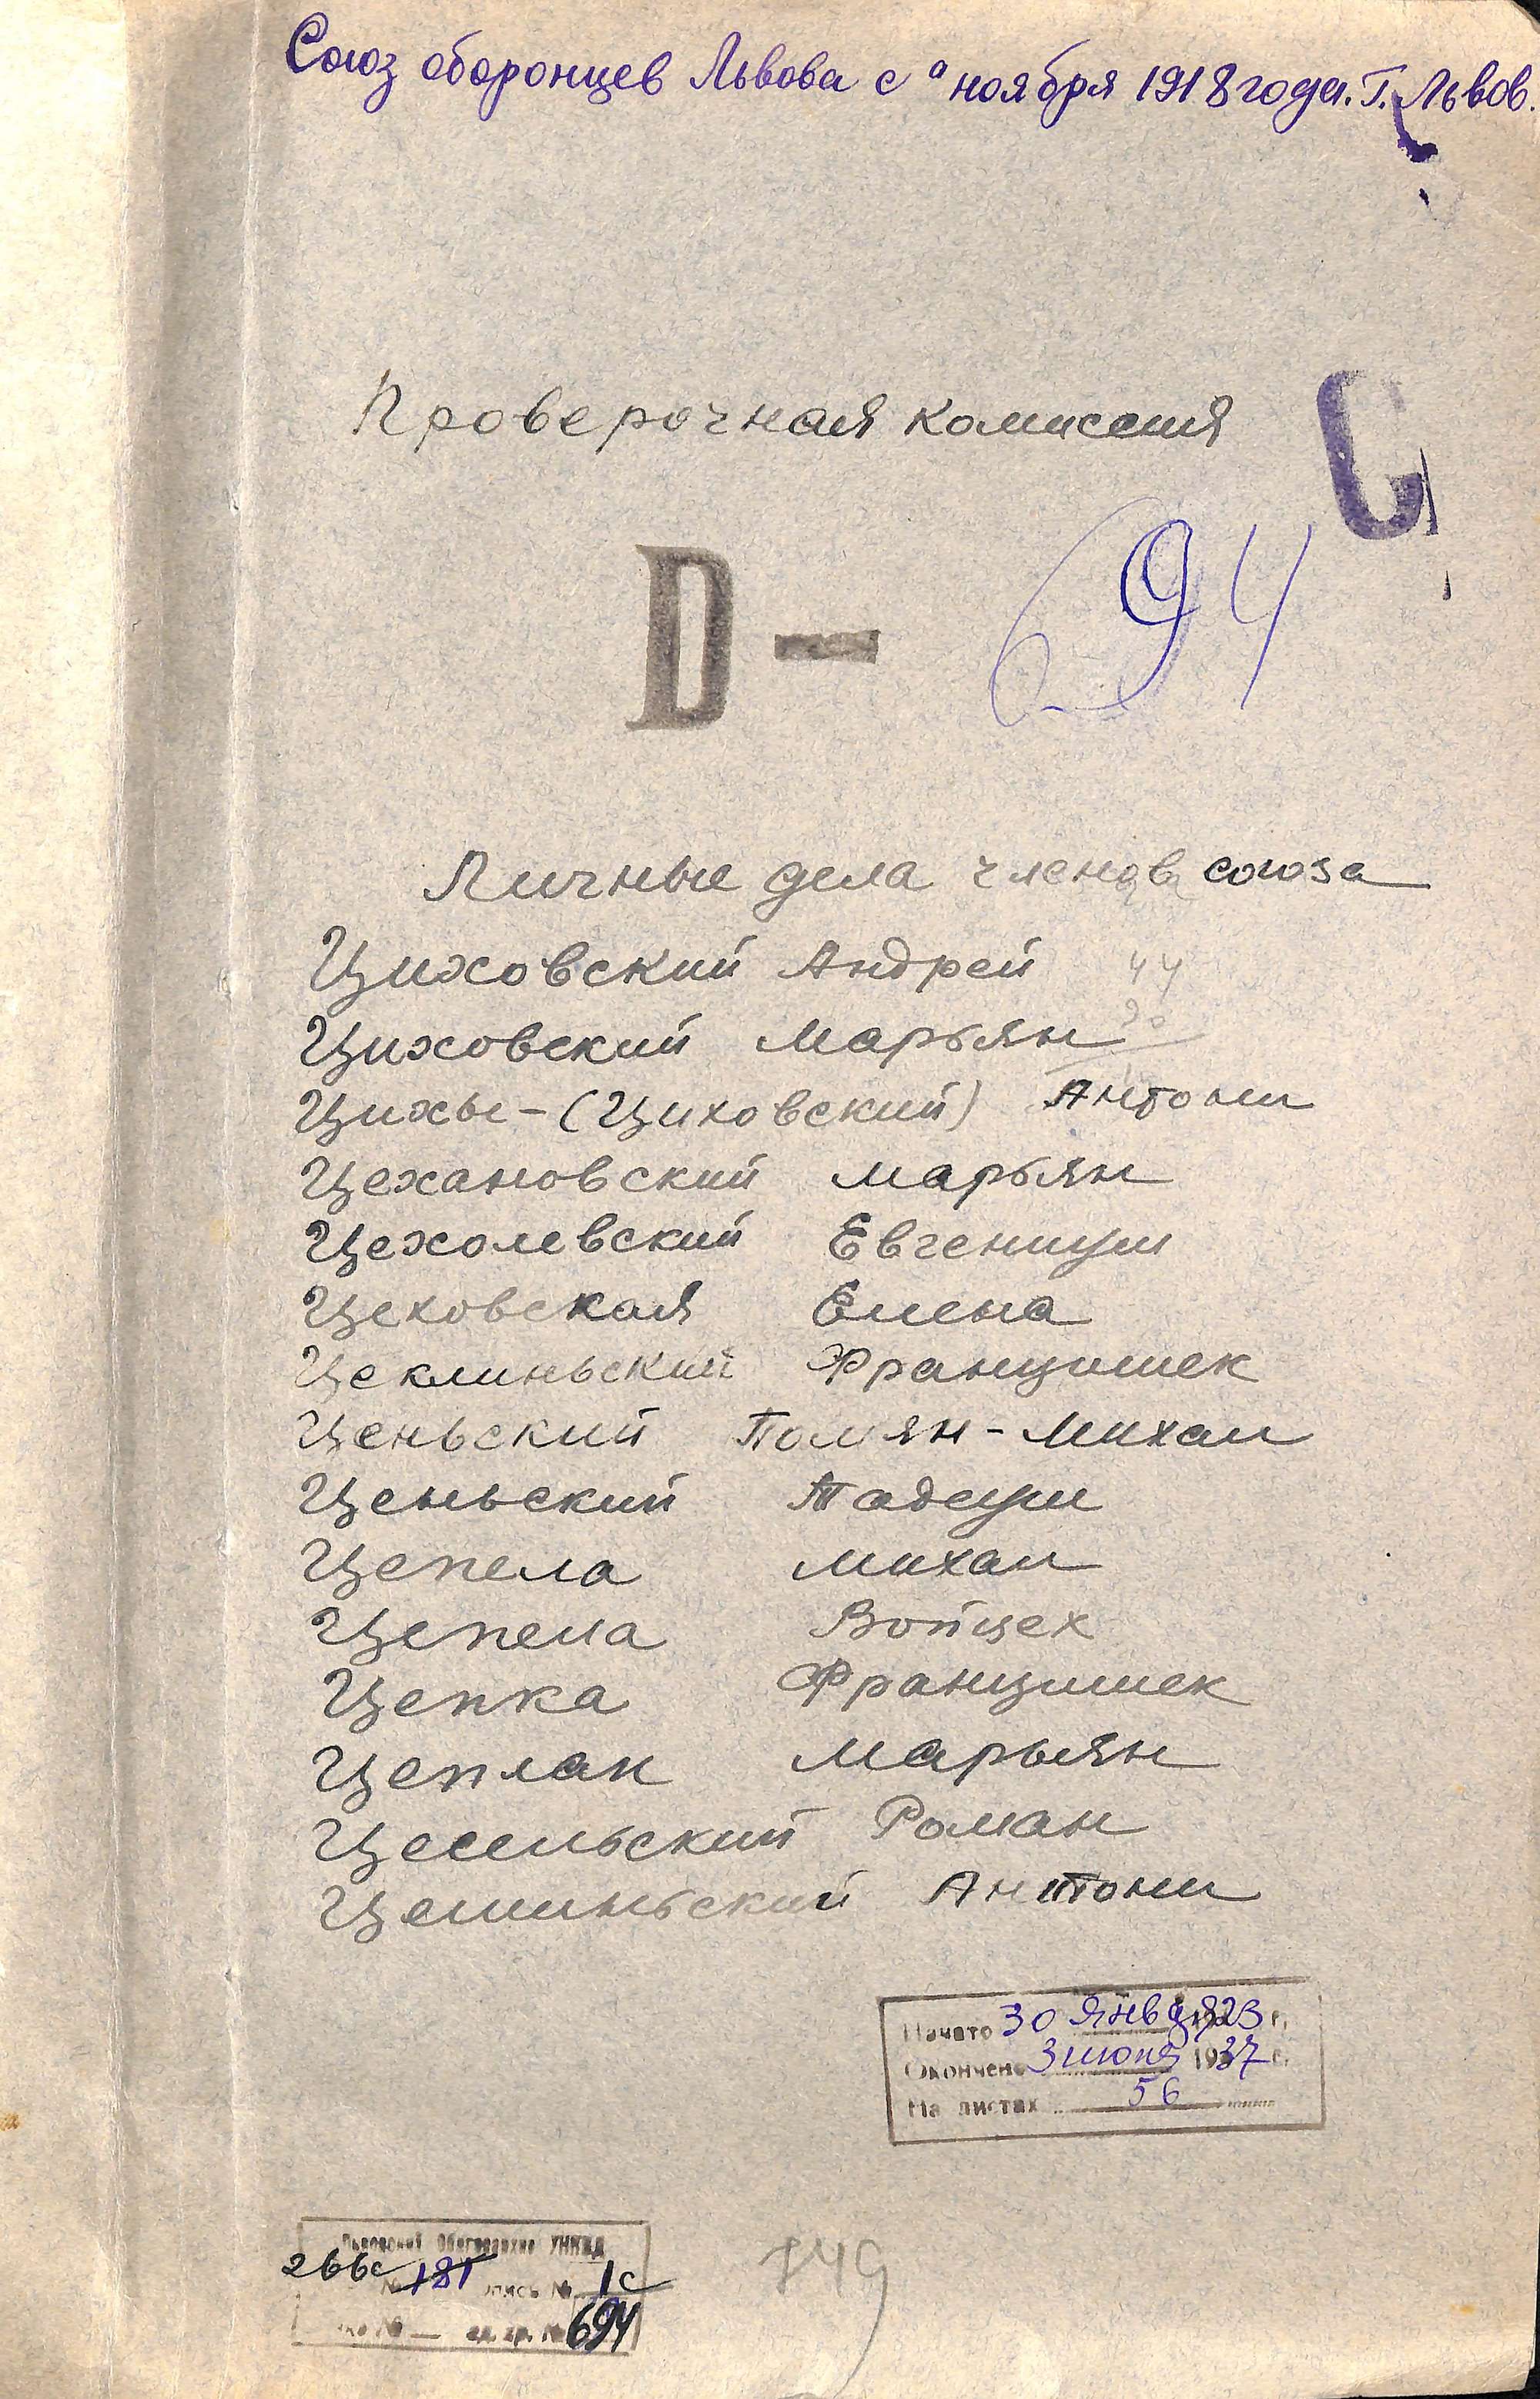 Союз оборонцев Львова с ноября 1918 года. Г. Львов.
Проверочная комиссия
С
D — 694
Личные дела членов союза
Циховский Андрей 44
Циховский Марьян
Цихы-(Циховский) Антони
Цехановский Марьян
Цехолевский Евгениуш
Цеховская Елена
Цеклиньский Францишек
Ценьский Помян-Михал
Ценьский Тадеуш
Цепела Михал
Цепела Войцех
Цепка Францишек
Цеплак Марьян
Цесельский Роман
Цешиньский Антони
Начато 30 января 1923 г.
Окончено 3 июня 1937 г.
На листах 56
Львовский Облгосархив УНКВД
266с № 181 опись № 1с
ед. хр. № 694
749